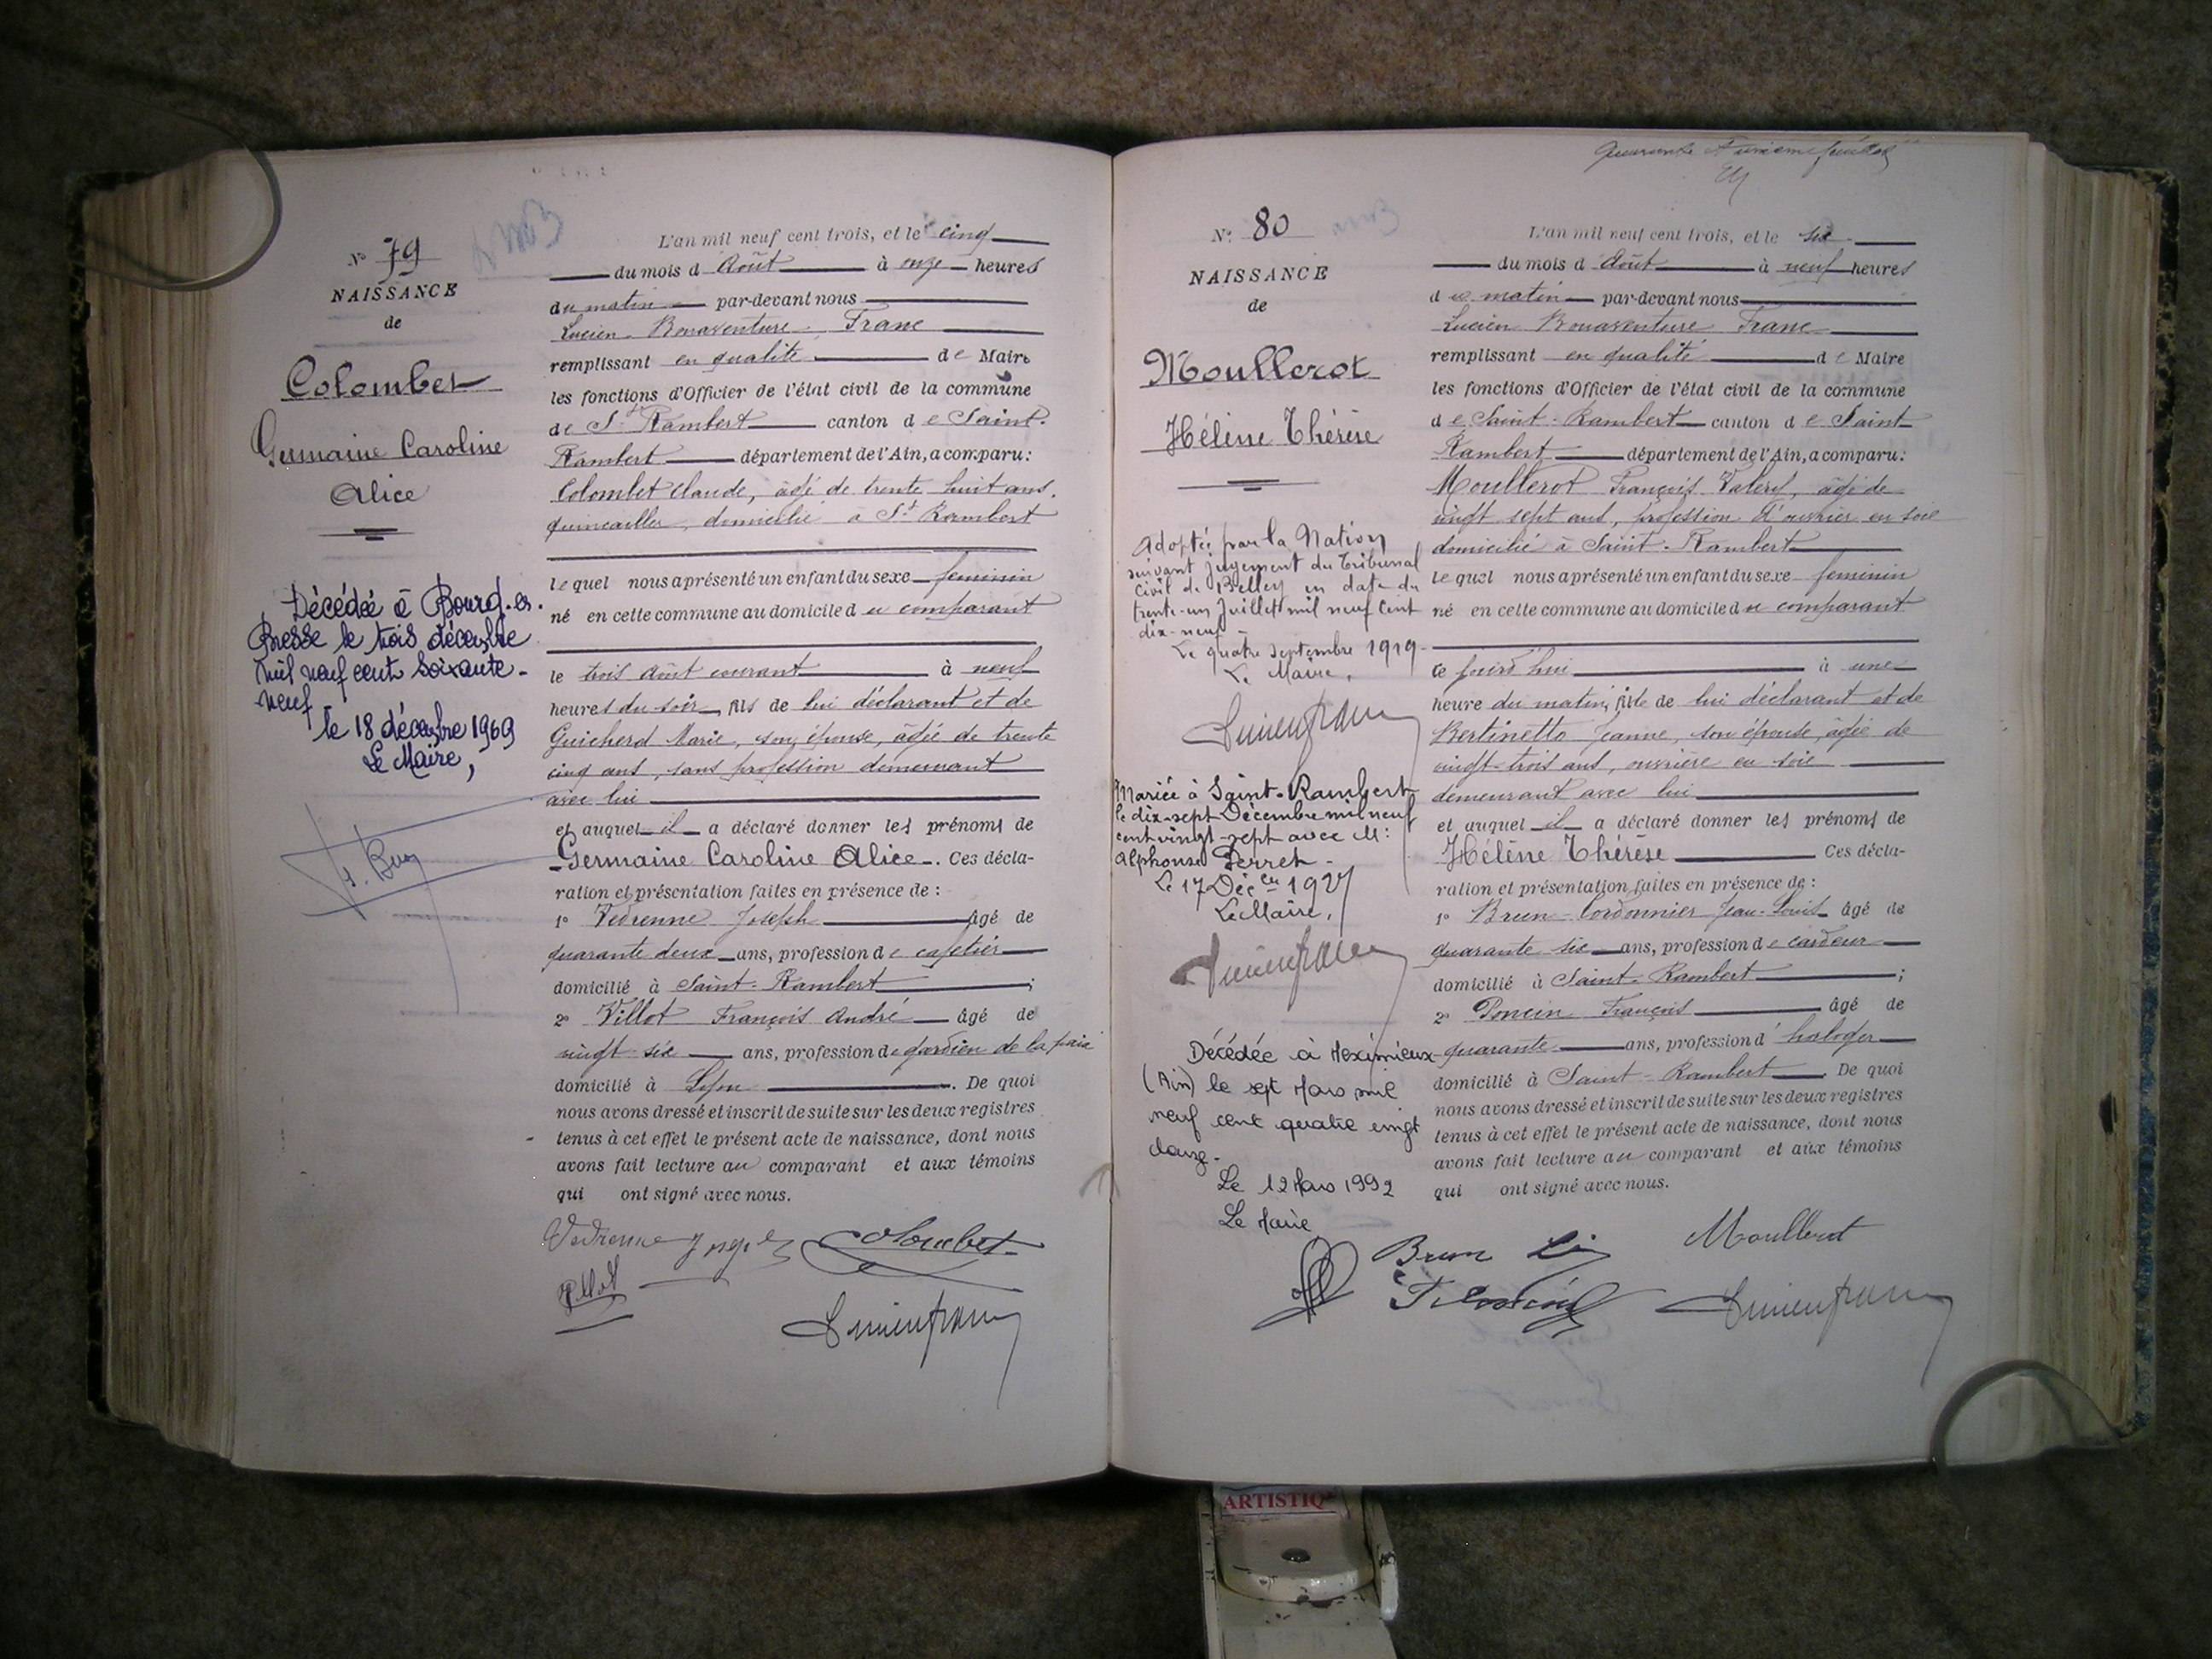 N° 79
NAISSANCE
de
Colombet
Germaine Caroline
Alice
Décédée à Bourg-en-
Bresse le trois décembre
mil neuf cent soixante-
neuf
le 18 décembre 1969
Le Maire,
L'an mil neuf cent trois, et le cinq
du mois d'Août à onze heures
du matin par-devant nous
Lucien Bonaventure Franc
remplissant en qualité de Maire
les fonctions d'Officier de l'état civil de la commune
de St Rambert canton de Saint-
Rambert département de l'Ain, a comparu:
Colombet Claude, âgé de trente huit ans,
quincailler, domicilié à St Rambert
lequel nous a présenté un enfant du sexe feminin
né en cette commune au domicile du comparant
le trois Août courant à neuf
heures du soir, fils de lui déclarant et de
Guicherd Marie, son épouse, âgée de trente
cinq ans, sans profession demeurant
avec lui
et auquel il a déclaré donner les prénoms de
Germaine Caroline Alice. Ces décla-
ration et présentation faites en présence de :
1° Vedrenne Joseph âgé de
quarante deux ans, profession de cafetier
domicilié à Saint-Rambert ;
2° Villot François André âgé de
vingt-six ans, profession de gardien de la paix
domicilié à Lyon. De quoi
nous avons dressé et inscrit de suite sur les deux registres
tenus à cet effet le présent acte de naissance, dont nous
avons fait lecture au comparant et aux témoins
qui ont signé avec nous.
Vedrenne Joseph Colombet
Villot
Lucien Franc
Quarante unième feuillet
N° 80
NAISSANCE
de
Moullerot
Hélène Thérèse
Adoptée par la Nation
suivant jugement du Tribunal
civil de Belley en date du
trente-un Juillet mil neuf cent
dix-neuf
Le quatre Septembre 1919
Le Maire,
Lucien Franc
Mariée à Saint-Rambert
le dix-sept Décembre mil neuf
cent vingt-sept avec M:
Alphonse Perret -
Le 17 Déc 1927
Le Maire,
Lucien Franc
Décédée à Meximieux
(Ain) le sept Mars mil
neuf cent quatre vingt
douze.
Le 12 Mars 1992
Le Maire
L'an mil neuf cent trois, et le six
du mois d'Août à neuf heures
du matin par-devant nous
Lucien Bonaventure Franc
remplissant en qualité de Maire
les fonctions d'Officier de l'état civil de la commune
de Saint-Rambert canton de Saint
Rambert département de l'Ain, a comparu:
Moullerot François Valery, âgé de
vingt sept ans, profession d'ouvrier en soie
domicilié à Saint-Rambert
lequel nous a présenté un enfant du sexe feminin
né en cette commune au domicile du comparant
ce jourd'hui à une
heure du matin, fille de lui déclarant et de
Bertinetto Jeanne, son épouse, âgée de
vingt-trois ans, ouvrière en soie
demeurant avec lui
et auquel il a déclaré donner les prénoms de
Hélène Thérèse Ces décla-
ration et présentation faites en présence de :
1° Brun-Cordonnier Jean-Louis âgé de
quarante six ans, profession de cardeur
domicilié à Saint-Rambert ;
2° Poncin François âgé de
quarante ans, profession d'horloger
domicilié à Saint-Rambert. De quoi
nous avons dressé et inscrit de suite sur les deux registres
tenus à cet effet le présent acte de naissance, dont nous
avons fait lecture au comparant et aux témoins
qui ont signé avec nous.
Brun Moullerot
Lucien Franc
ARTISTIQ